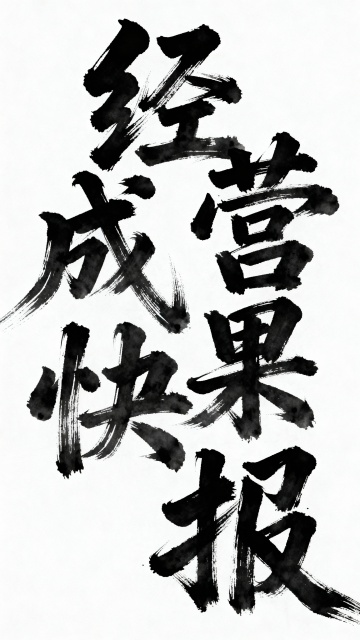 经营
成果
快报